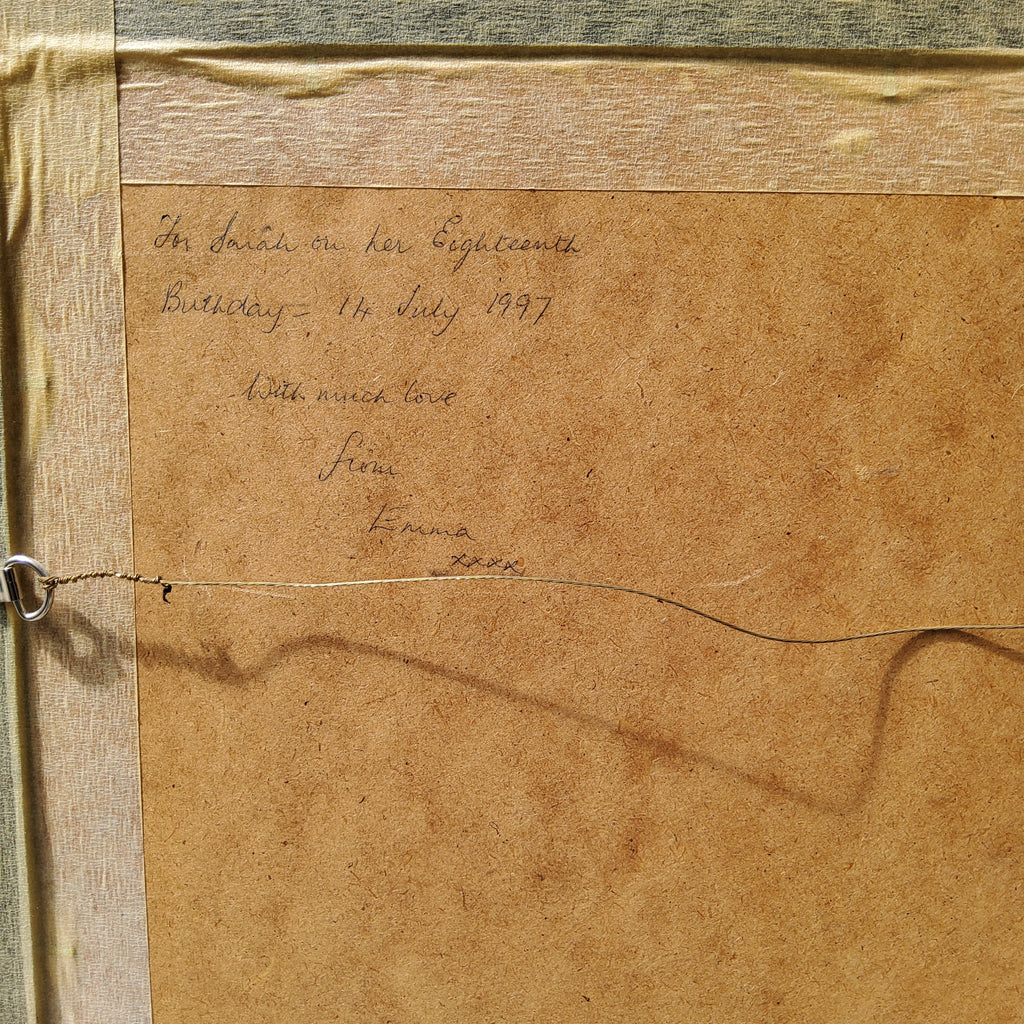 For Sarah on her Eighteenth
Birthday - 14 July 1997
With much love
from
Emma
xxxx